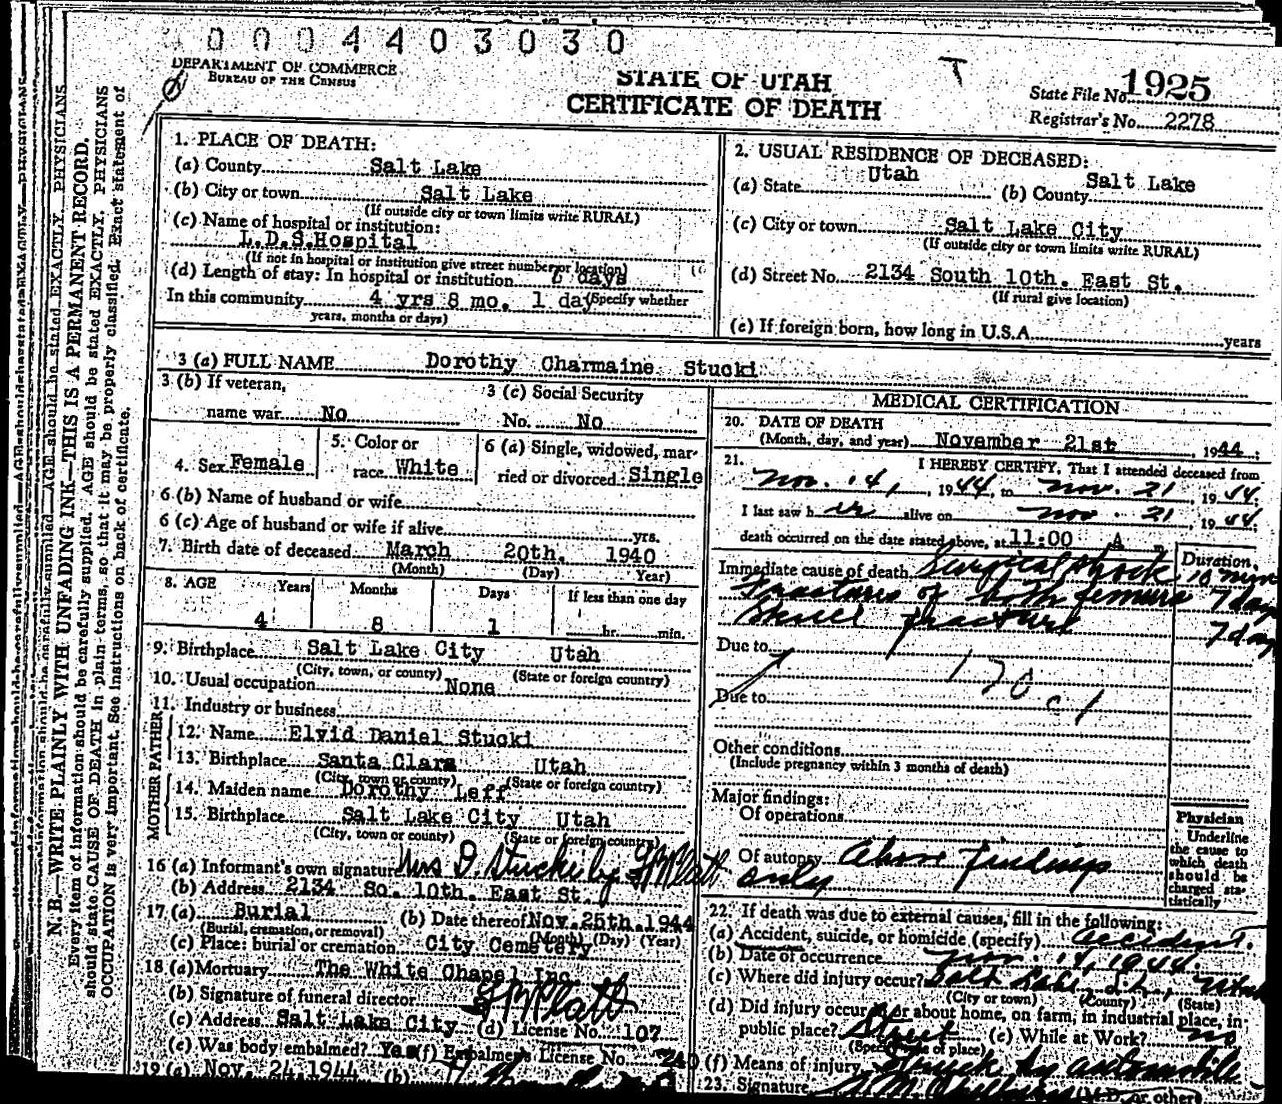 0 0 0 4 4 0 3 0 3 0
DEPARTMENT OF COMMERCE
BUREAU OF THE CENSUS
STATE OF UTAH
CERTIFICATE OF DEATH
T
State File No. 1925
Registrar's No. 2278
N. B.—WRITE PLAINLY WITH UNFADING INK—THIS IS A PERMANENT RECORD.
Every item of information should be carefully supplied. AGE should be stated EXACTLY. PHYSICIANS
should state CAUSE OF DEATH in plain terms, so that it may be properly classified. Exact statement of
OCCUPATION is very important. See instructions on back of certificate.
1. PLACE OF DEATH:
(a) County Salt Lake
(b) City or town Salt Lake
(If outside city or town limits write RURAL)
(c) Name of hospital or institution:
L.D.S.Hospital
(If not in hospital or institution give street number or location)
(d) Length of stay: In hospital or institution days
In this community 4 yrs 8 mo. 1 day (Specify whether
years, months or days)
2. USUAL RESIDENCE OF DECEASED:
(a) State Utah (b) County Salt Lake
(c) City or town Salt Lake City
(If outside city or town limits write RURAL)
(d) Street No. 2134 South 10th. East St.
(If rural give location)
(e) If foreign born, how long in U.S.A. years
3 (a) FULL NAME Dorothy Charmaine Stucki
3 (b) If veteran, name war No
3 (c) Social Security No. No
4. Sex Female
5. Color or race White
6 (a) Single, widowed, married or divorced: Single
6 (b) Name of husband or wife
6 (c) Age of husband or wife if alive yrs.
7. Birth date of deceased March 20th. 1940
(Month) (Day) Year)
8. AGE Years Months Days If less than one day
4 8 1 hr. min.
9. Birthplace Salt Lake City Utah
(City, town, or county) (State or foreign country)
10. Usual occupation None
11. Industry or business
FATHER
12. Name Elvid Daniel Stucki
13. Birthplace Santa Clara Utah
(City, town or county) (State or foreign country)
MOTHER
14. Maiden name Dorothy Leff
15. Birthplace Salt Lake City Utah
(City, town or county) (State or foreign country)
16 (a) Informant's own signature Mrs D. Stucki by G W Platt
(b) Address 2134 So. 10th. East St.
17 (a) Burial (b) Date thereof Nov.25th.1944
(Burial, cremation, or removal) (Month) (Day) (Year)
(c) Place: burial or cremation City Cemetery
18 (a) Mortuary The White Chapel Inc.
(b) Signature of funeral director G W Platt
(c) Address Salt Lake City (d) License No. 107
(e) Was body embalmed? Yes (f) Embalmer's License No. 240
19 (a) Nov. 24, 1944 (b)
MEDICAL CERTIFICATION
20. DATE OF DEATH
(Month, day, and year) November 21st, 1944;
21. I HEREBY CERTIFY, That I attended deceased from
Nov. 14, 1944, to Nov. 21, 1944.
I last saw her alive on Nov. 21, 1944.
death occurred on the date stated above, at 11:00 A m
Duration
Immediate cause of death Surgical shock 10 min
Fractures of both femurs 7 day
Skull fracture 7 day
Due to
170 c 1
Due to
Other conditions
(Include pregnancy within 3 months of death)
Major findings:
Of operations
Of autopsy Above findings
only
Physician
Underline
the cause to
which death
should be
charged sta-
tistically
22. If death was due to external causes, fill in the following:
(a) Accident, suicide, or homicide (specify) Accident.
(b) Date of occurrence Nov. 14, 1944
(c) Where did injury occur? Salt Lake, S.L., Utah
(City or town) (County) (State)
(d) Did injury occur in or about home, on farm, in industrial place, in
public place? Street (e) While at Work? no
(Specify type of place)
(f) Means of injury Struck by automobile
23. Signature (M.D. or other)